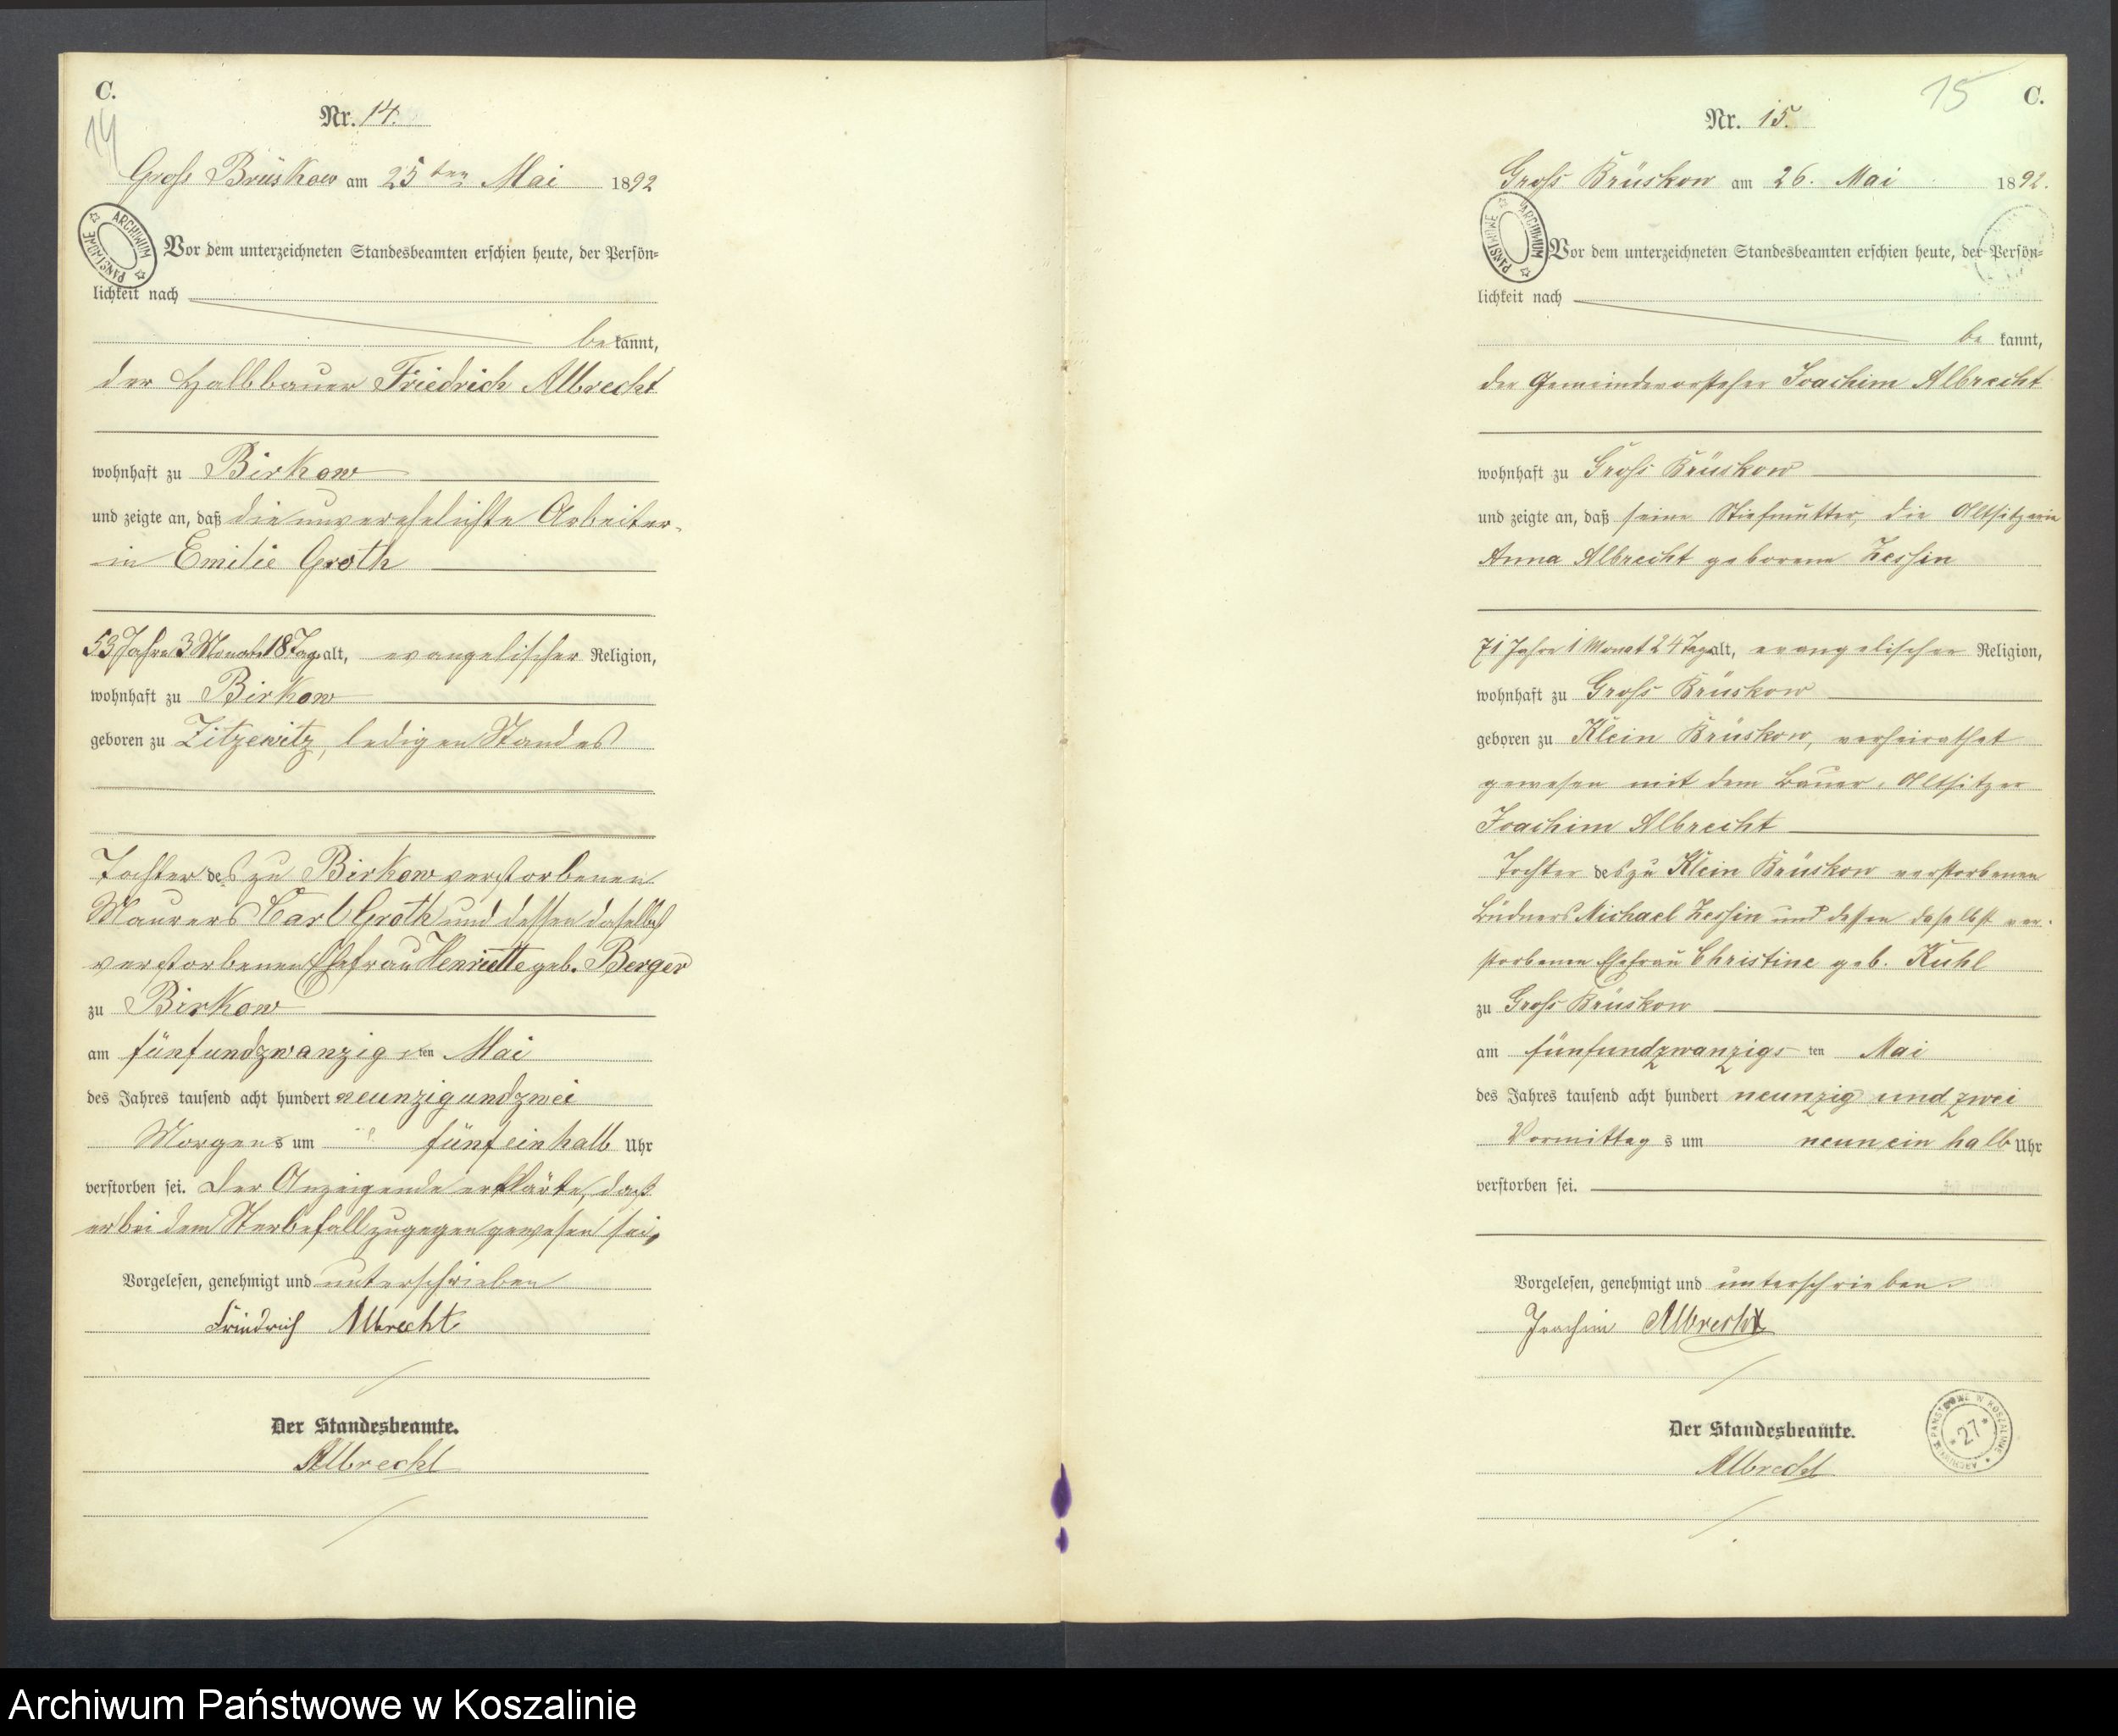 C.
14
Nr. 14.
Groß Brüskow am 25ten Mai 1892
ARCHIWUM PAŃSTWOWE
Vor dem unterzeichneten Standesbeamten erschien heute, der Persön=
lichkeit nach
bekannt,
der Halbbauer Friedrich Albrecht
wohnhaft zu Birkow
und zeigte an, daß die unverehelichte Arbeiter-
in Emilie Groth
53 Jahre 3 Monate 18 Tage alt, evangelischer Religion,
wohnhaft zu Birkow
geboren zu Zitzewitz, ledigen Standes
Tochter des zu Birkow verstorbenen
Maurers Carl Groth und dessen daselbst
verstorbenen Ehefrau Henriette geb. Berger
zu Birkow
am fünfundzwanzigsten Mai
des Jahres tausend acht hundert neunzig und zwei
Morgens um fünf einhalb Uhr
verstorben sei. Der Anzeigende erklärte, daß
er bei dem Sterbefall zugegen gewesen sei.
Vorgelesen, genehmigt und unterschrieben
Friedrich Albrecht
Der Standesbeamte.
Albrecht
15
C.
Nr. 15.
Groß Brüskow am 26. Mai 1892.
ARCHIWUM PAŃSTWOWE
Vor dem unterzeichneten Standesbeamten erschien heute, der Persön=
lichkeit nach
be kannt,
der Gemeindevorsteher Joachim Albrecht
wohnhaft zu Groß Brüskow
und zeigte an, daß seine Stiefmutter, die Altsitzerin
Anna Albrecht geborene Zessin
71 Jahre 1 Monat 24 Tage alt, evangelischer Religion,
wohnhaft zu Groß Brüskow
geboren zu Klein Brüskow, verheirathet
gewesen mit dem Bauer-Altsitzer
Joachim Albrecht
Tochter des zu Klein Brüskow verstorbenen
Büdners Michael Zessin und dessen daselbst ver-
storbenen Ehefrau Christine geb. Kuhl
zu Groß Brüskow
am fünfundzwanzigsten Mai
des Jahres tausend acht hundert neunzig und zwei
Vormittags um neun ein halb Uhr
verstorben sei.
Vorgelesen, genehmigt und unterschrieben.
Joachim Albrecht
Der Standesbeamte.
Albrecht
ARCHIWUM PAŃSTWOWE W KOSZALINIE * 27 *
Archiwum Państwowe w Koszalinie